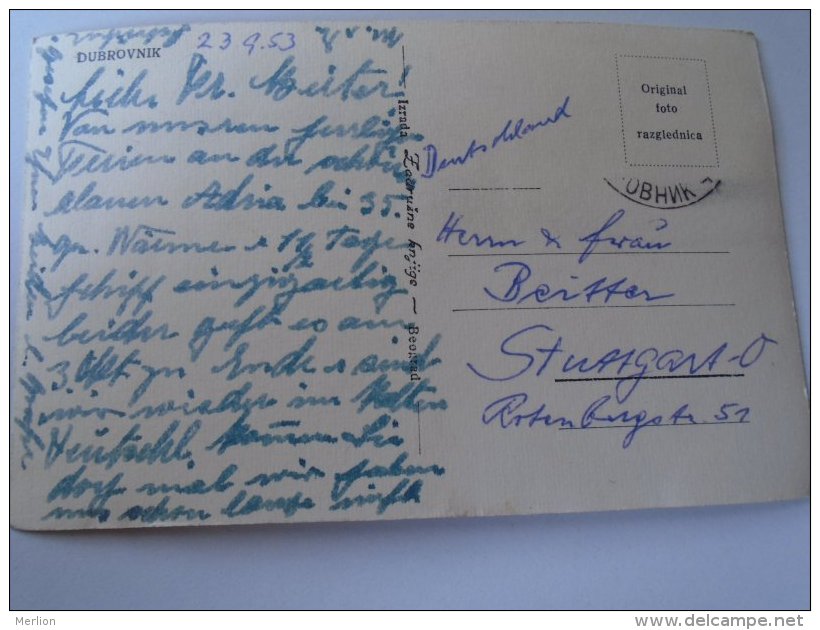 DUBROVNIK
23.9.53
Liebe Fr. Beiter!
Von unseren
Ferien an der schön
blauen Adria bei 35
gr. Wärme u 1½ Tage
Schiff einzigartig
leider geht es am
3 Okt zu Ende u sind
wir wieder im kalten
Deutschl. kommen Sie
doch mal wir haben
uns schon lange nicht
Izrada Zadružne knjige — Beograd
Original
foto
razglednica
ОВНИК
Deutschland
Herrn & Frau
Beitter
Stuttgart-O
Rotenbergstr. 51
Merlion
www.delcampe.net